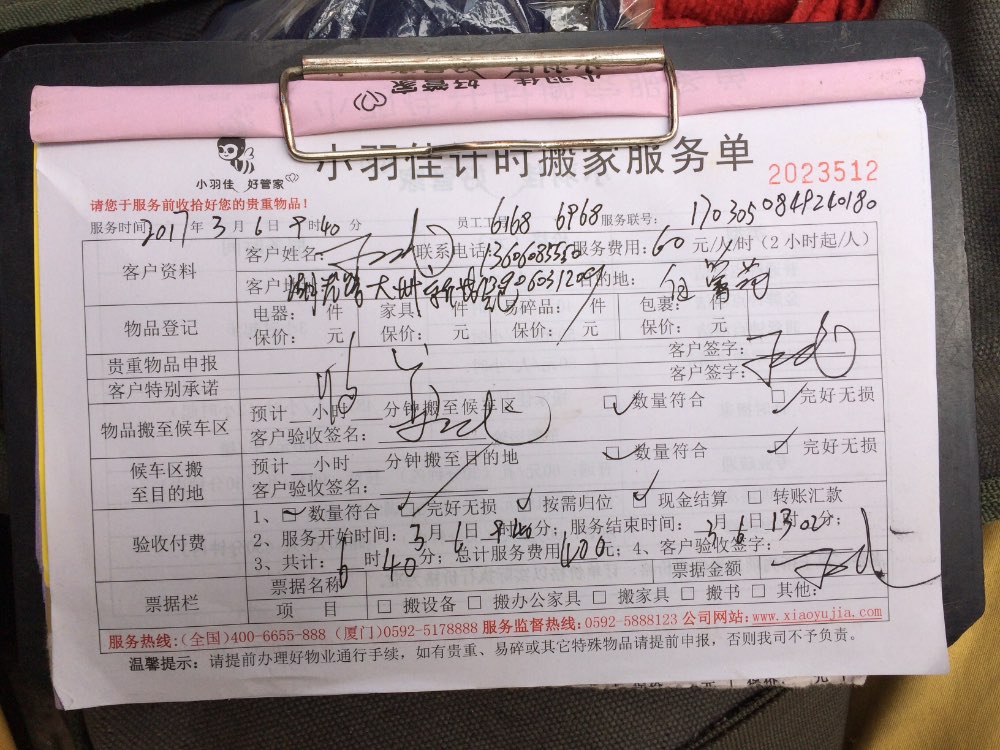 小羽佳 好管家
小羽佳计时搬家服务单
小羽佳 好管家
2023512
请您于服务前收拾好您的贵重物品!
服务时间 2017年3月6日9时40分 员工工号 6168 6968 服务联号: 1703050849240180
客户资料
客户姓名: 联系电话: 服务费用: 60元/人/时(2小时起/人)
客户地 目的地:
物品登记
电器: 件 家具: 件 易碎品: 件 包裹: 件
保价: 元 保价: 元 保价: 元 保价: 元
贵重物品申报 客户签字:
客户特别承诺 客户签字:
物品搬至候车区
预计__小时 分钟搬至候车区 □ 数量符合 □ 完好无损
客户验收签名:
候车区搬至目的地
预计__小时___分钟搬至目的地 □ 数量符合 □ 完好无损
客户验收签名:
验收付费
1、□ 数量符合 □ 完好无损 □ 按需归位 □ 现金结算 □ 转账汇款
2、服务开始时间: 3月6日9时40分; 服务结束时间: 3月6日13时02分;
3、共计: 6时40分; 总计服务费用400元; 4、客户验收签字:
票据栏
票据名称 票据金额
项 目 □ 搬设备 □ 搬办公家具 □ 搬家具 □ 搬书 □ 其他:
服务热线:(全国)400-6655-888 (厦门)0592-5178888 服务监督热线:0592-5888123 公司网站:www.xiaoyujia.com
温馨提示: 请提前办理好物业通行手续,如有贵重、易碎或其它特殊物品请提前申报,否则我司不予负责。